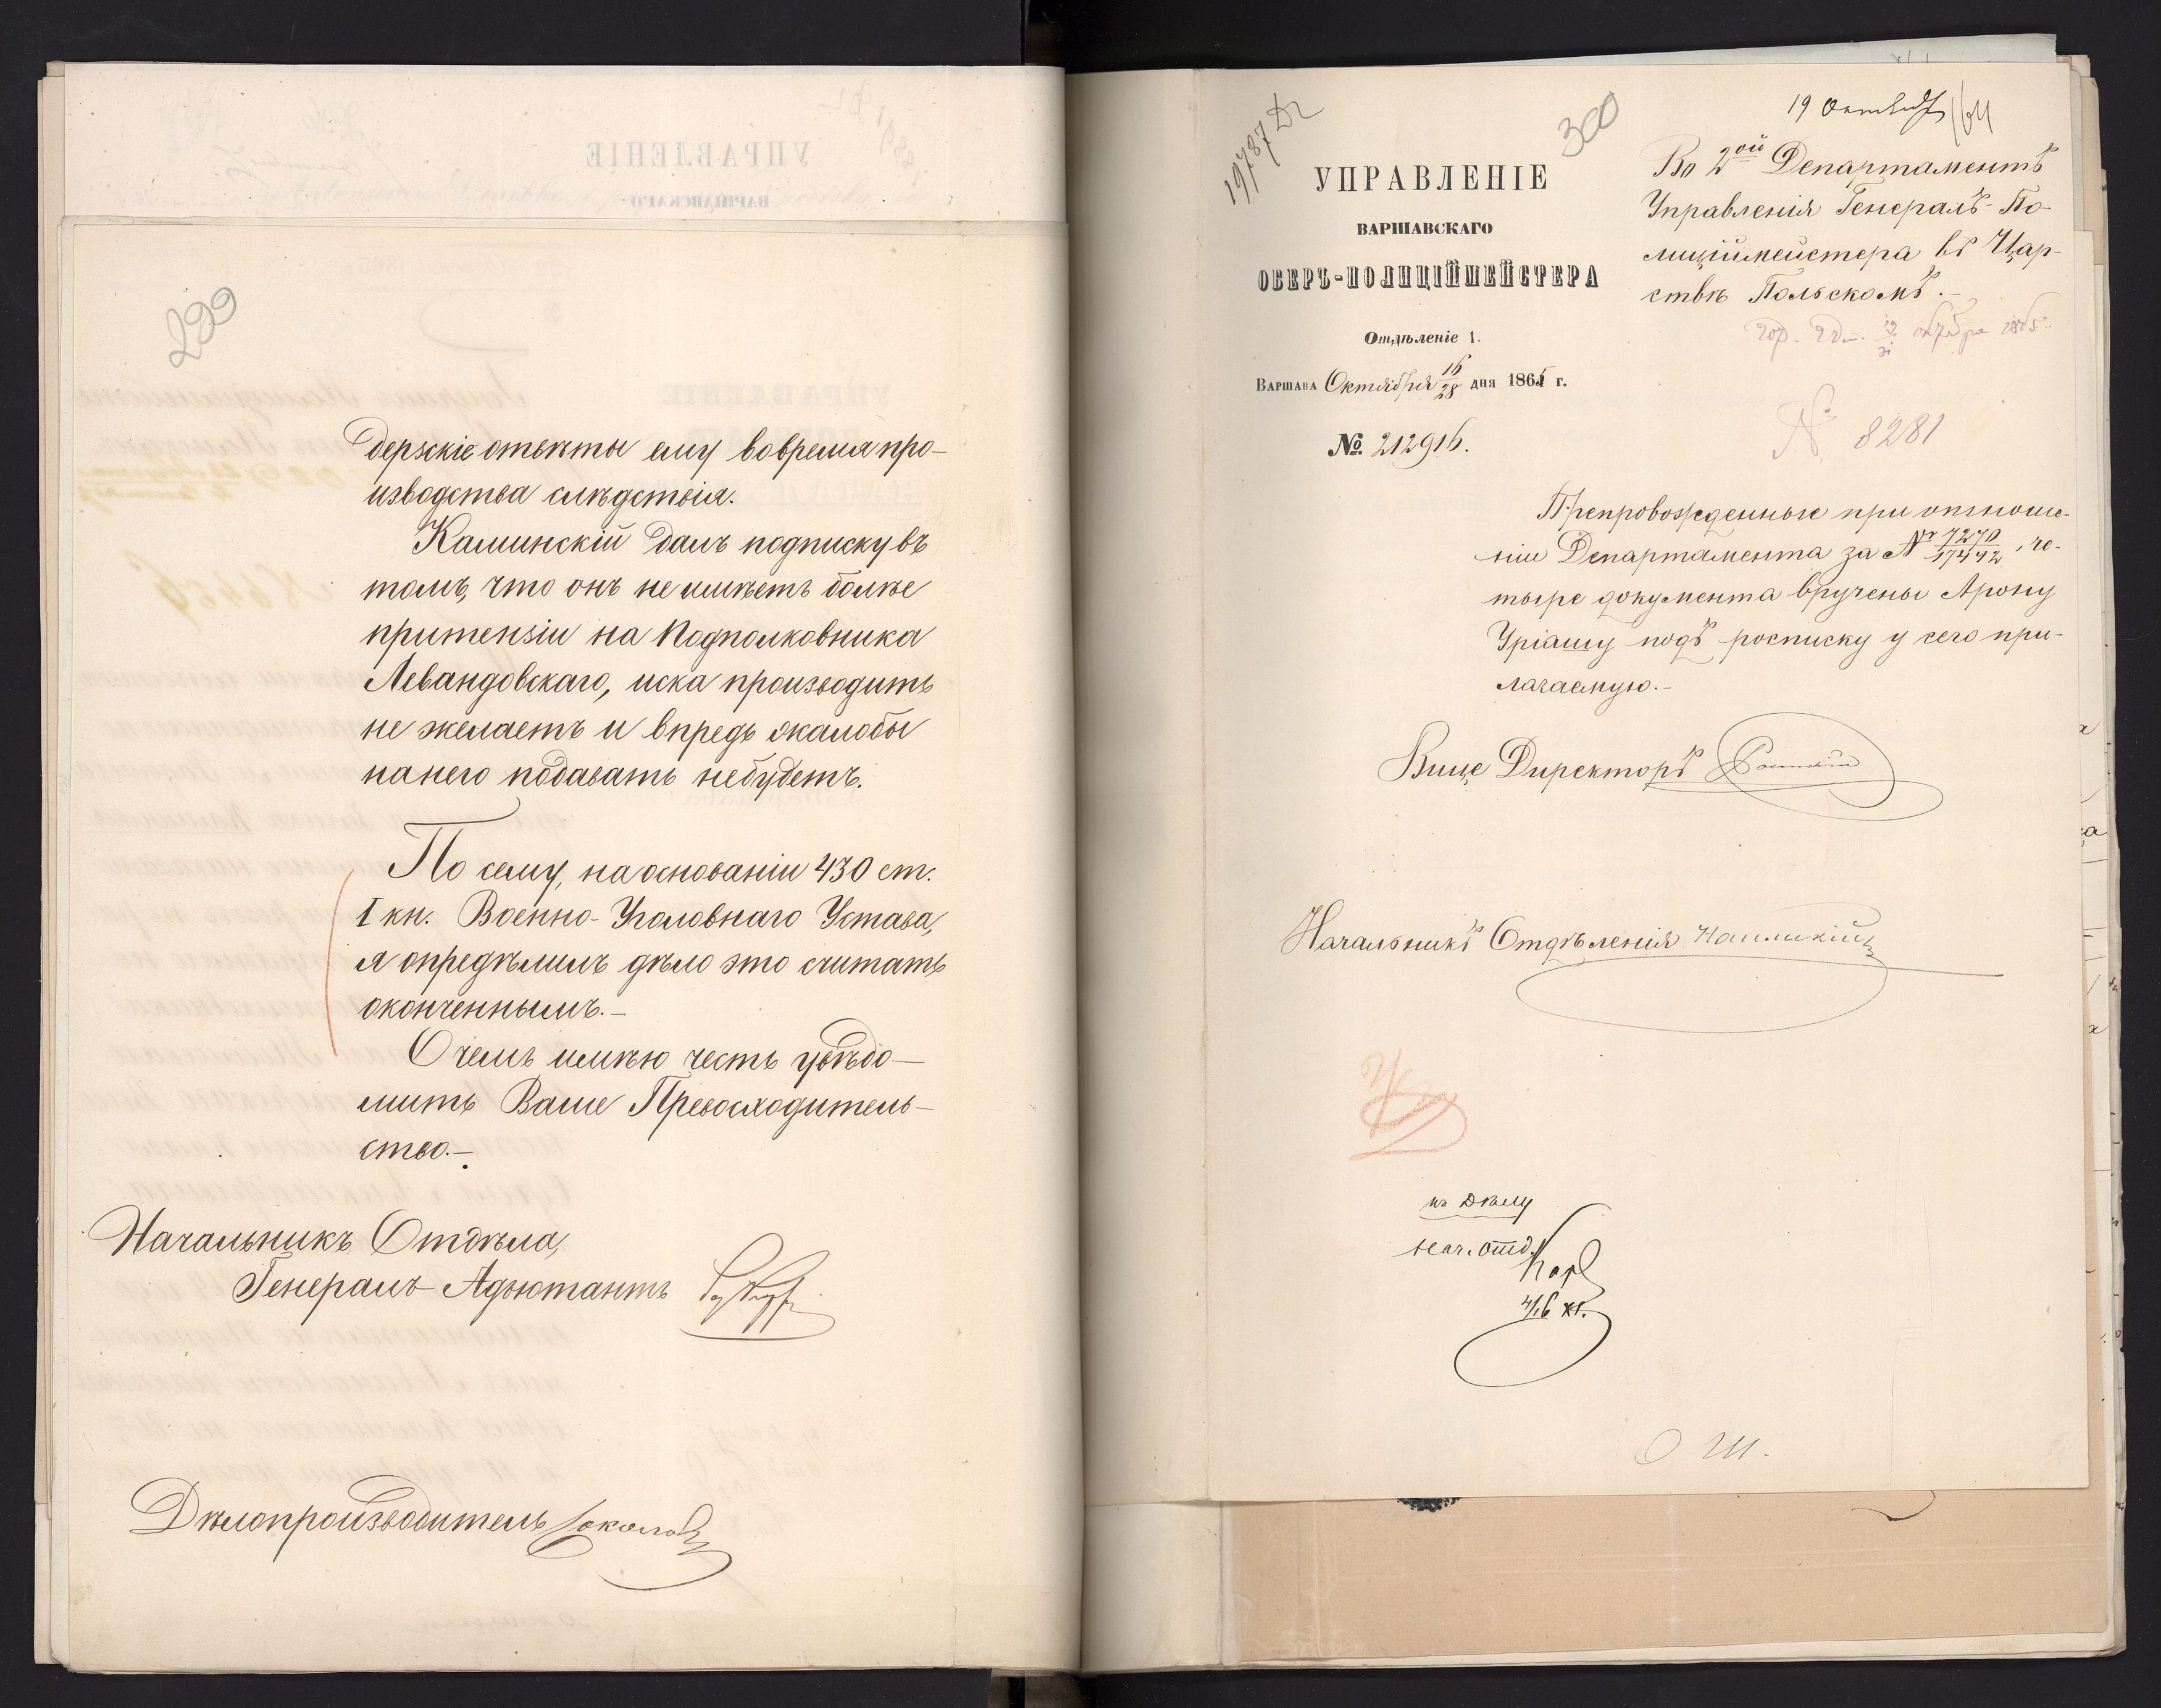 299
дерзкіе ответы ему вовремя про-
изводства слѣдствія.
Калинскій далъ подписку въ
томъ, что онъ не имѣетъ болѣе
притензіи на Подполковника
Левандовскаго, иска производить
не желаетъ и впредь жалобы
на него подавать небудетъ.
По сему, на основаніи 430 ст.
I кн. Военно-Уголовнаго Устава,
я опредѣлилъ дѣло это считать
оконченнымъ.-
О чемъ имѣю честь увѣдо-
мить Ваше Превосходитель-
ство.-
Начальникъ Отдѣла,
Генералъ-Адъютантъ
Дѣлопроизводитель Соколовъ
19787
300
19 Октября
УПРАВЛЕНІЕ
ВАРШАВСКАГО
ОБЕРЪ-ПОЛИЦІЙМЕЙСТЕРА
Отдѣленіе 1.
Варшава Октября 16/28 дня 1865 г.
№ 212916.
Во 2ой Департаментъ
Управленія Генералъ-По-
лиціймейстера въ Цар-
ствѣ Польскомъ.-
№ 8281
Препровожденные при отноше-
ніи Департамента за № 7270/17442, че-
тыре документа вручены Арону
Уріашу подъ росписку у сего при-
лагаемую.-
Вице Директоръ
Начальникъ Отдѣленія
къ Дѣлу
нач. отд.
4/16 XI.